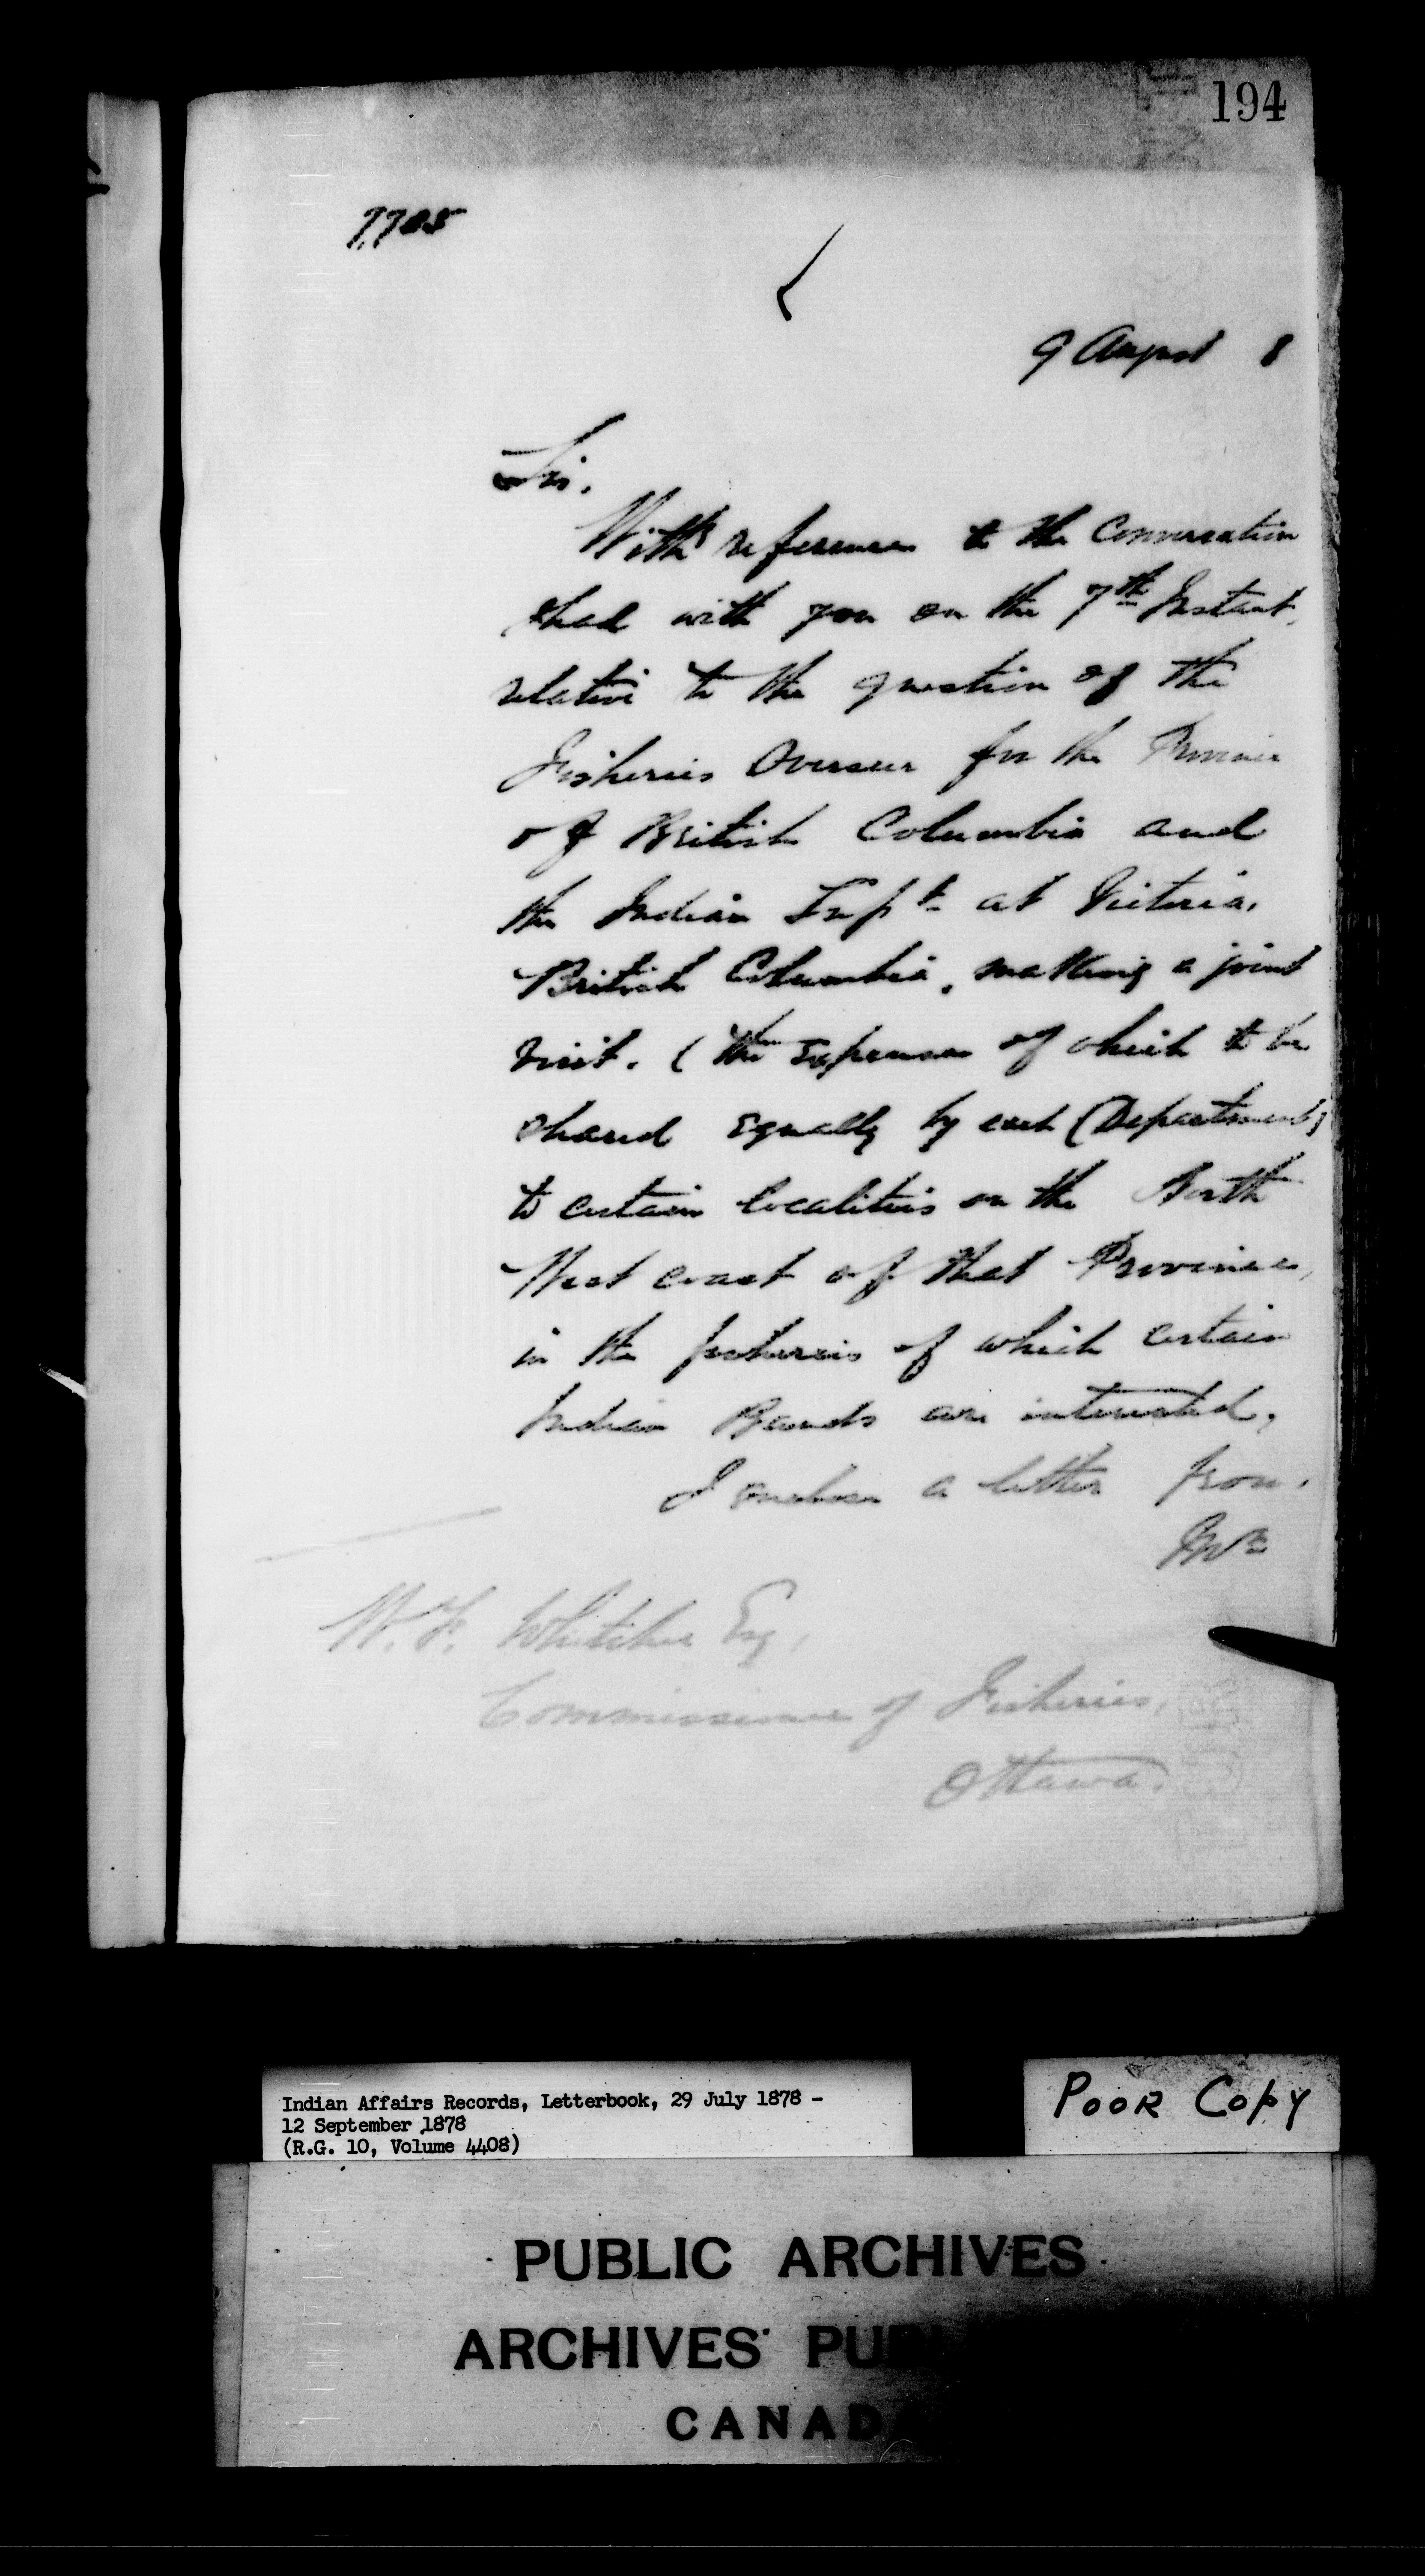 194
7705
9 August 8
Sir,
With reference to the Conversation
I had with you on the 7th Instant,
relative to the question of the
Fisheries Overseer for the Province
of British Columbia and
the Indian Supt at Victoria,
British Columbia, making a joint
visit, (the expenses of which to be
shared equally by each Department)
to certain localities on the North
West coast of that Province,
in the fisheries of which certain
Indian Bands are interested,
I enclose a letter from
Mr
W. F. Whitcher Esq,
Commissioner of Fisheries,
Ottawa.
Indian Affairs Records, Letterbook, 29 July 1878 -
12 September 1878
(R.G. 10, Volume 4408)
POOR COPY
PUBLIC ARCHIVES
ARCHIVES PU
CANAD